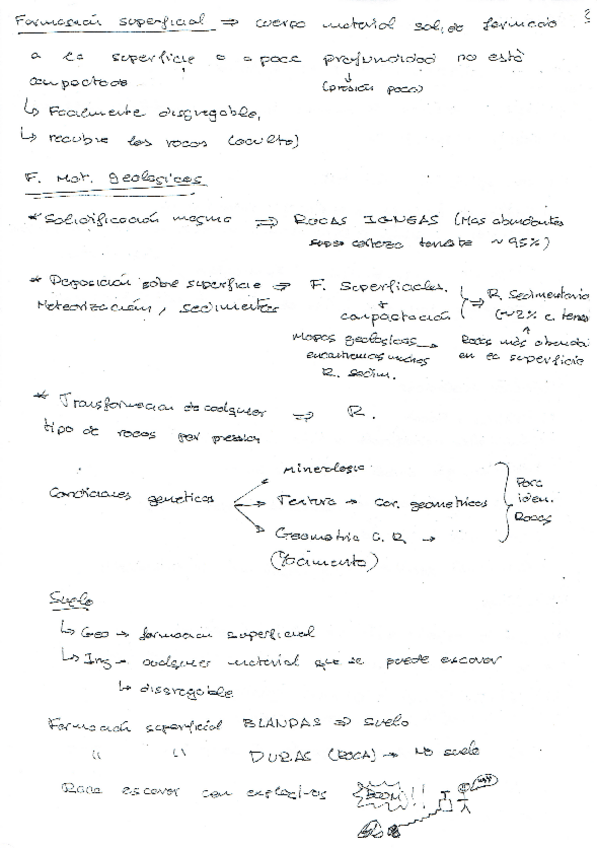 Formación superficial ⇒ cuerpo material solido formado
a la superficie o a poca profundidad no está
compactado (presión poca)
↳ Facilmente disgregable,
↳ recubre las rocas (oculto)
F. Mat. geologicos
* Solidificación magma ⇒ ROCAS IGNEAS (Mas abundantes
corteza terrestre ~95%)
* Deposición sobre superficie ⇒ F. Superficiales. ⇒ R. Sedimentaria
Meteorización, sedimentos + compactación (~2% c. terres
Mapas geologicos → Rocas más abunda
encontramos muchas en la superficie
R. Sedim.
* Transformacion de cualquier ⇒ R.
tipo de rocas por presion
Mineralogia
Condiciones geneticas → Textura → Car. geometricos Para iden. Rocas
Geometria C. R. →
(Yacimiento)
Suelo
↳ Geo → formacion superficial
↳ Ing → cualquier material que se puede escavar
↳ disgregable
Formación superficial BLANDAS ⇒ suelo
" " DURAS (ROCA) → No suelo
Para escavar con explosivos BOOM!!